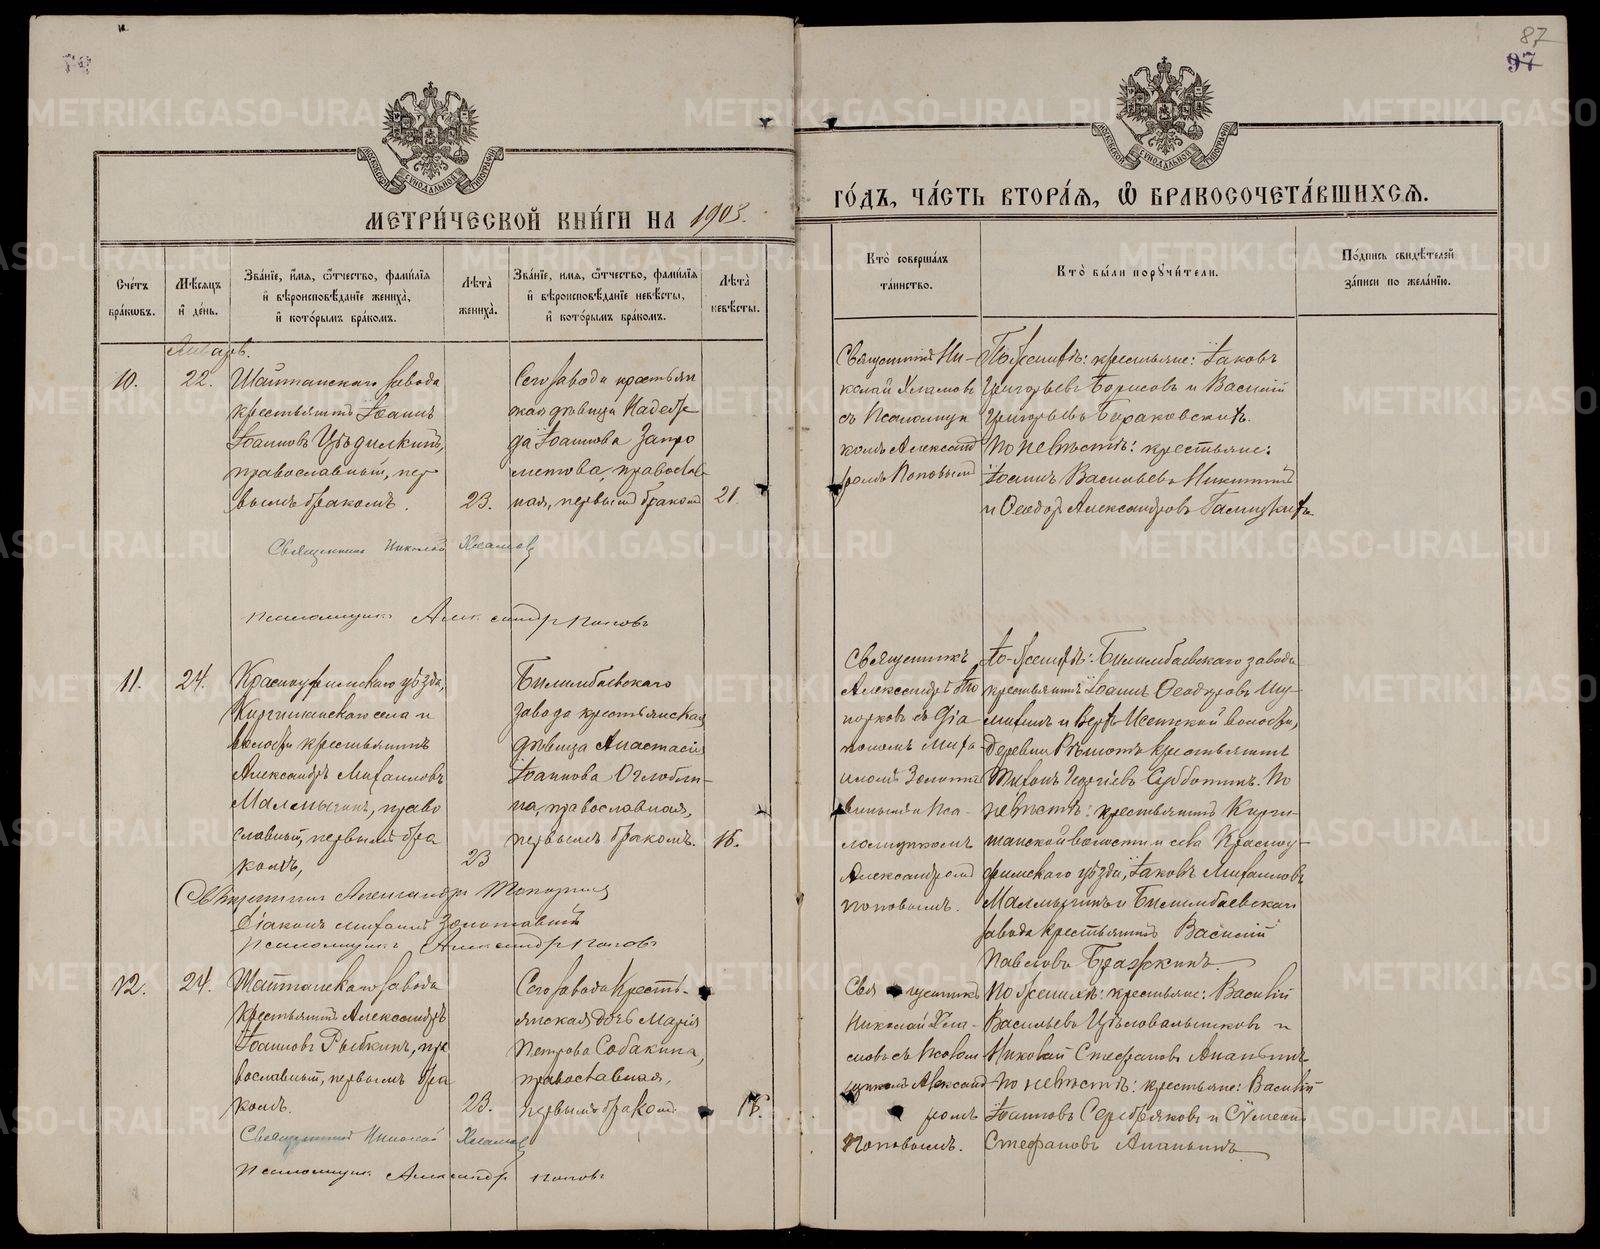 87
97
МОСКОВСКОЙ СУНОДАЛЬНОЙ ТИПОГРАФІИ
МОСКОВСКОЙ СУНОДАЛЬНОЙ ТИПОГРАФІИ
МЕТРИ́ЧЕСКОЙ КНИ́ГИ НА 1903.
ГО́ДЪ, ЧА́СТЬ ВТОРА́Я, Ѡ БРАКОСОЧЕТА́ВШИХСЯ.
Сче́тъ
бра́ковъ.
Мѣ́сяцъ
и҆ де́нь.
Зва́нїе, и҆́мя, ѻ҆́тчество, фами́лїя
и҆ вѣроисповѣ́данїе жениха̀,
и҆ кото́рымъ бра́комъ.
Лѣта̀
жениха̀.
Зва́нїе, и҆́мя, ѻ҆́тчество, фами́лїя
и҆ вѣроисповѣ́данїе невѣ́сты,
и҆ кото́рымъ бра́комъ.
Лѣта̀
невѣ́сты.
Кто̀ соверша́лъ
та́инство.
Кто̀ бы́ли поручи́тели.
По́дпись свидѣ́телей
за́писи по жела́нїю.
Январь.
10.
22.
Шайтанскаго завода
крестьянинъ Іоаннъ
Іоанновъ
православный, пер
вымъ бракомъ.
23.
Сего завода крестьян
ская дѣвица Надеж
да Іоаннова Запро
метова, православ
ная, первымъ бракомъ
21.
Священникъ Ни-
колай Хламовъ
съ Псаломщи
комъ Александ
ромъ Поповымъ
По женихѣ: крестьяне: Іаковъ
Григорьевъ Борисовъ и Василій
Григорьевъ
По невѣстѣ: крестьяне:
Іоаннъ Васильевъ Никитинъ
и Ѳеодоръ Александровъ
Священникъ Николай Хламовъ
Псаломщикъ Александръ Поповъ
11.
24.
Красноуфимскаго уѣзда,
Киргишанскаго села и
волости крестьянинъ
Александръ Михаиловъ
Малмыгинъ, право
славный, первымъ бра
комъ,
23
Билимбаевскаго
завода крестьянская
дѣвица Анастасія
Іоаннова Оглобли-
на, православная,
первымъ бракомъ.
18.
Священникъ
Александръ То
порковъ съ Діа
кономъ Миха
иломъ Золота
винымъ и Пса-
ломщикомъ
Александромъ
Поповымъ.
По женихѣ: Билимбаевскаго завода
крестьянинъ Іоаннъ Ѳеодоровъ Шу-
и Верхъ Исетской волости,
деревни Рѣшотъ крестьянинъ
Тихонъ Георгіевъ Субботинъ. По
невѣстѣ: крестьянинъ Кирги
шанской волости и села Красноу-
фимскаго уѣзда, Іаковъ Михаиловъ
Малмыгинъ и Билимбаевскаго
завода крестьянинъ Василій
Павловъ Бражкинъ.
Священникъ Александръ Топорковъ
Діаконъ Михаилъ Золотавинъ
Псаломщикъ Александръ Поповъ
12.
24.
Шайтанскаго завода
крестьянинъ Александръ
Іоанновъ Рыбкинъ, пра
вославный, первымъ бра
комъ.
23.
Сего завода Кресть-
янская дочь Марія
Петрова Собакина,
православная,
первымъ бракомъ.
18.
Священникъ
Николай Хла-
мовъ съ Псалом
щикомъ Александ
ромъ
Поповымъ.
По женихѣ: крестьяне: Василій
Васильевъ Цѣловальниковъ и
Николай Стефановъ Ананьинъ
По невѣстѣ: крестьяне: Василій
Іоанновъ Серебряковъ и Сѵмеонъ
Стефановъ Ананьинъ.
Священникъ Николай Хламовъ
Псаломщикъ Александръ Поповъ
METRIKI.GASO-URAL.RU